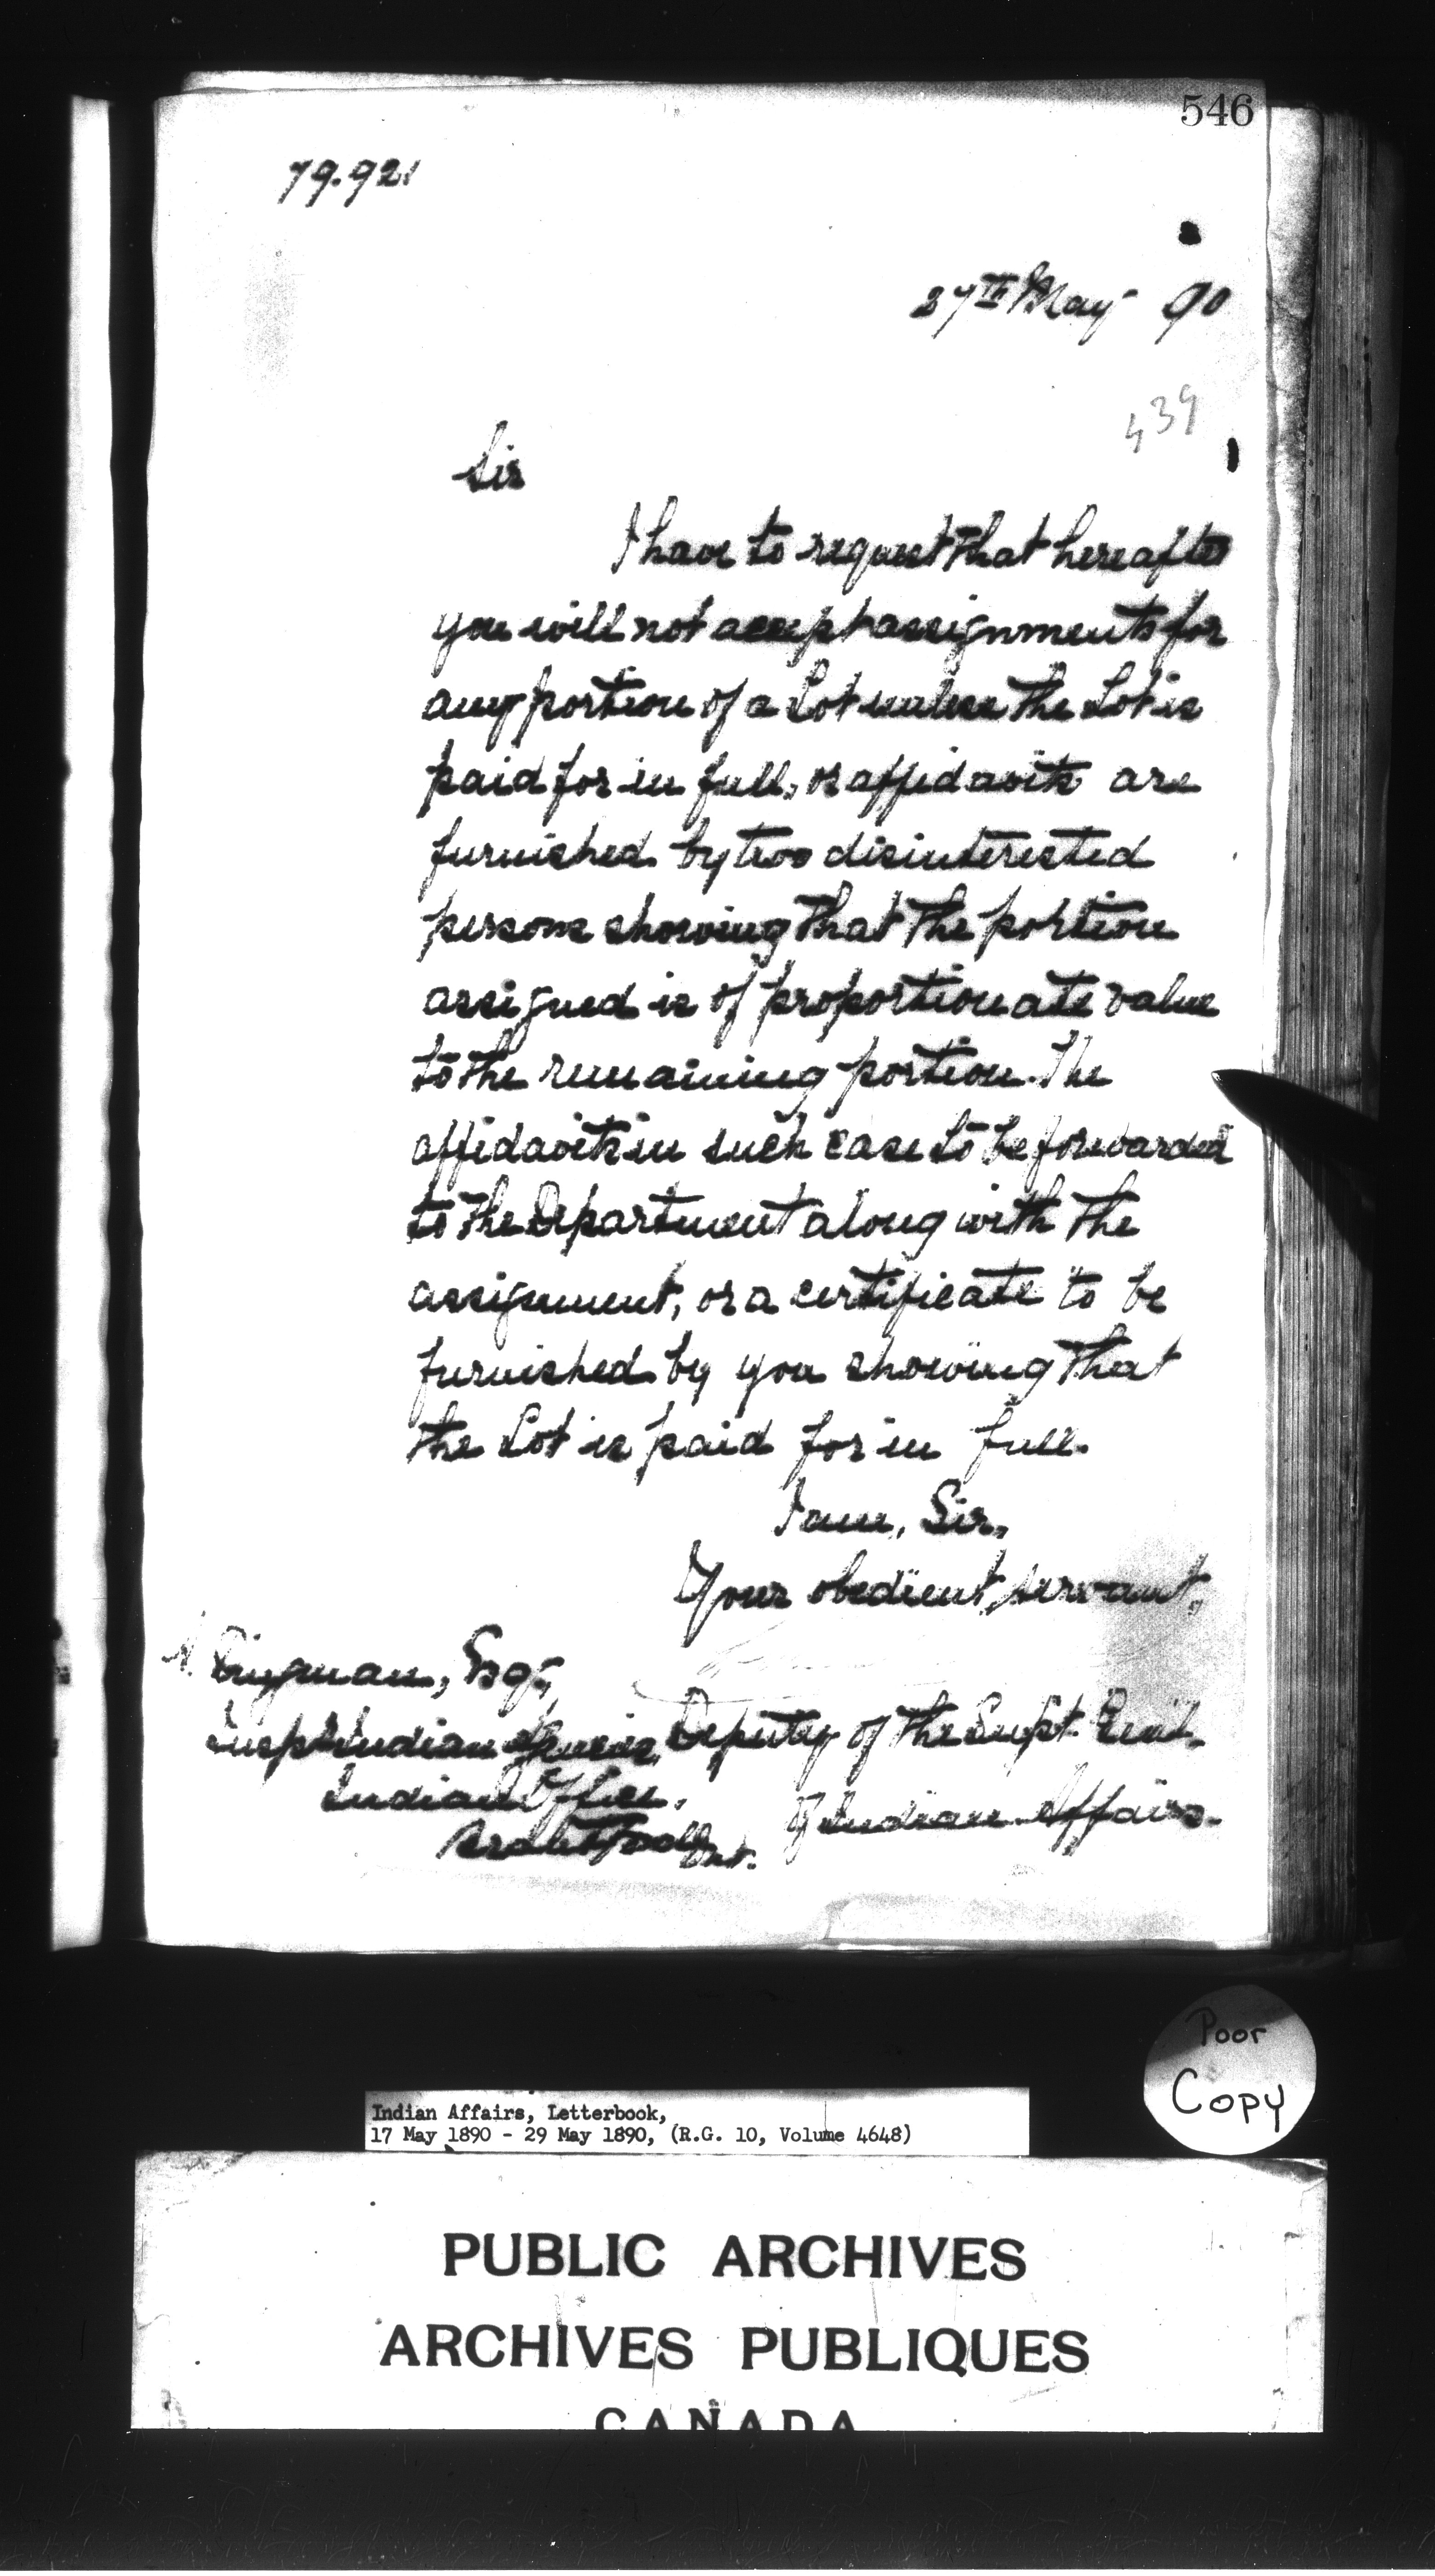 546
79.921
27th May 90
439
Sir
I have to request that hereafter
you will not accept assignments for
any portion of a Lot unless the Lot is
paid for in full, or affidavits are
furnished by two disinterested
persons showing that the portion
assigned is of proportionate value
to the remaining portion. The
affidavits in such case to be forwarded
to the Department along with the
assignment, or a certificate to be
furnished by you showing that
the Lot is paid for in full.
I am, Sir,
Your obedient servant,
Dingman, Esq,
Insp Indian Deputy of the Supt. Genl.
Indian Office, of Indian Affairs.
Brantford Ont.
Poor
Copy
Indian Affairs, Letterbook,
17 May 1890 - 29 May 1890, (R.G. 10, Volume 4648)
PUBLIC ARCHIVES
ARCHIVES PUBLIQUES
CANADA